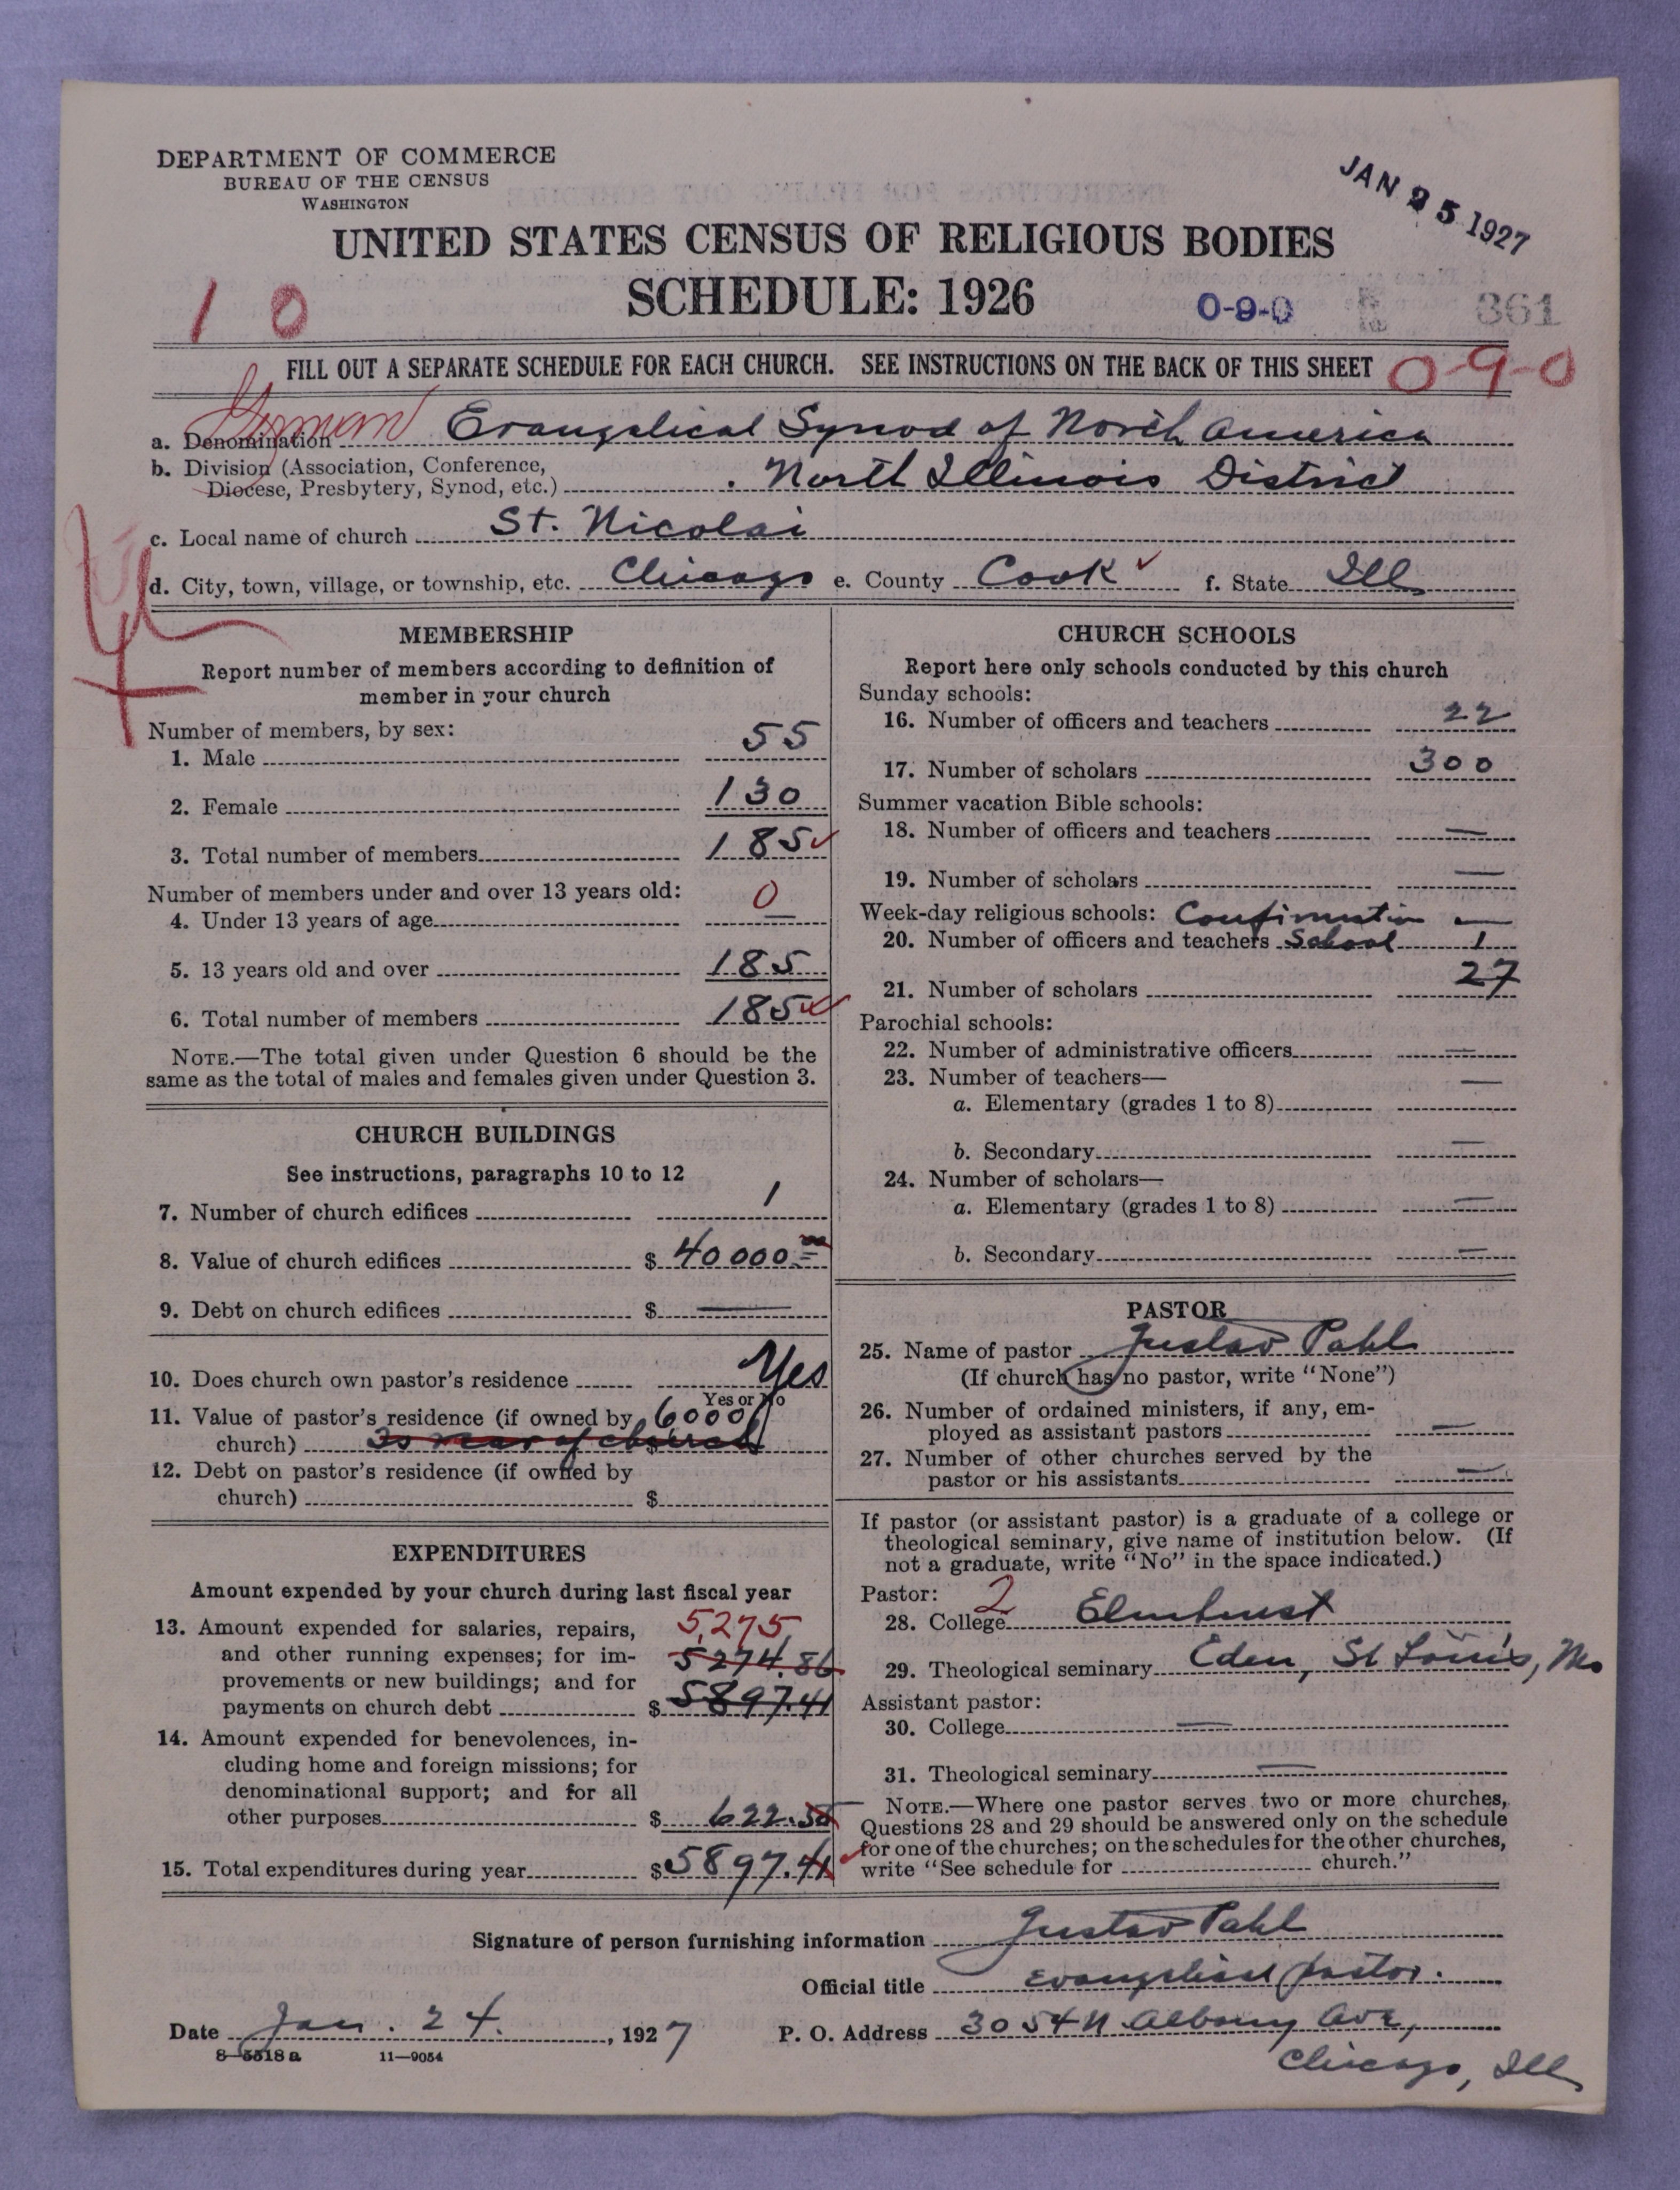 DEPARTMENT OF COMMERCE
BUREAU OF THE CENSUS
WASHINGTON
JAN 25 1927
UNITED STATES CENSUS OF RELIGIOUS BODIES
SCHEDULE: 1926
10
0-9-0
361
FILL OUT A SEPARATE SCHEDULE FOR EACH CHURCH. SEE INSTRUCTIONS ON THE BACK OF THIS SHEET
0-9-0
a. Denomination German Evangelical Synod of North America
b. Division (Association, Conference,
Diocese, Presbytery, Synod, etc.) North Illinois District
c. Local name of church St. Nicolai
d. City, town, village, or township, etc. Chicago e. County Cook ✓ f. State Ill
MEMBERSHIP
Report number of members according to definition of
member in your church
Number of members, by sex:
1. Male 55
2. Female 130
3. Total number of members 185 ✓
Number of members under and over 13 years old:
4. Under 13 years of age 0 —
5. 13 years old and over 185
6. Total number of members 185 ✓
NOTE.—The total given under Question 6 should be the
same as the total of males and females given under Question 3.
CHURCH BUILDINGS
See instructions, paragraphs 10 to 12
7. Number of church edifices 1
8. Value of church edifices $ 40000.00
9. Debt on church edifices $ —
10. Does church own pastor's residence Yes
Yes or No
11. Value of pastor's residence (if owned by 6000
church) $
12. Debt on pastor's residence (if owned by
church) $
EXPENDITURES
Amount expended by your church during last fiscal year
13. Amount expended for salaries, repairs, 5,275
and other running expenses; for im- 5274.86
provements or new buildings; and for
payments on church debt $ 5897.41
14. Amount expended for benevolences, in-
cluding home and foreign missions; for
denominational support; and for all
other purposes $ 622.55
15. Total expenditures during year $ 5897.41 ✓
CHURCH SCHOOLS
Report here only schools conducted by this church
Sunday schools:
16. Number of officers and teachers 22
17. Number of scholars 300
Summer vacation Bible schools:
18. Number of officers and teachers —
19. Number of scholars —
Week-day religious schools: Confirmation —
20. Number of officers and teachers School 1
21. Number of scholars 27
Parochial schools:
22. Number of administrative officers —
23. Number of teachers— —
a. Elementary (grades 1 to 8)
b. Secondary —
24. Number of scholars—
a. Elementary (grades 1 to 8) —
b. Secondary —
PASTOR
25. Name of pastor Gustav Pahl
(If church has no pastor, write "None")
26. Number of ordained ministers, if any, em-
ployed as assistant pastors —
27. Number of other churches served by the
pastor or his assistants —
If pastor (or assistant pastor) is a graduate of a college or
theological seminary, give name of institution below. (If
not a graduate, write "No" in the space indicated.)
Pastor: 2
28. College Elmhurst
29. Theological seminary Eden, St Louis, Mo
Assistant pastor:
30. College —
31. Theological seminary —
NOTE.—Where one pastor serves two or more churches,
Questions 28 and 29 should be answered only on the schedule
for one of the churches; on the schedules for the other churches,
write "See schedule for church."
Signature of person furnishing information Gustav Pahl
Official title Evangelical pastor.
Date Jan. 24. , 1927 P. O. Address 3054 N Albany Ave,
Chicago, Ill
8—5518a 11—9054